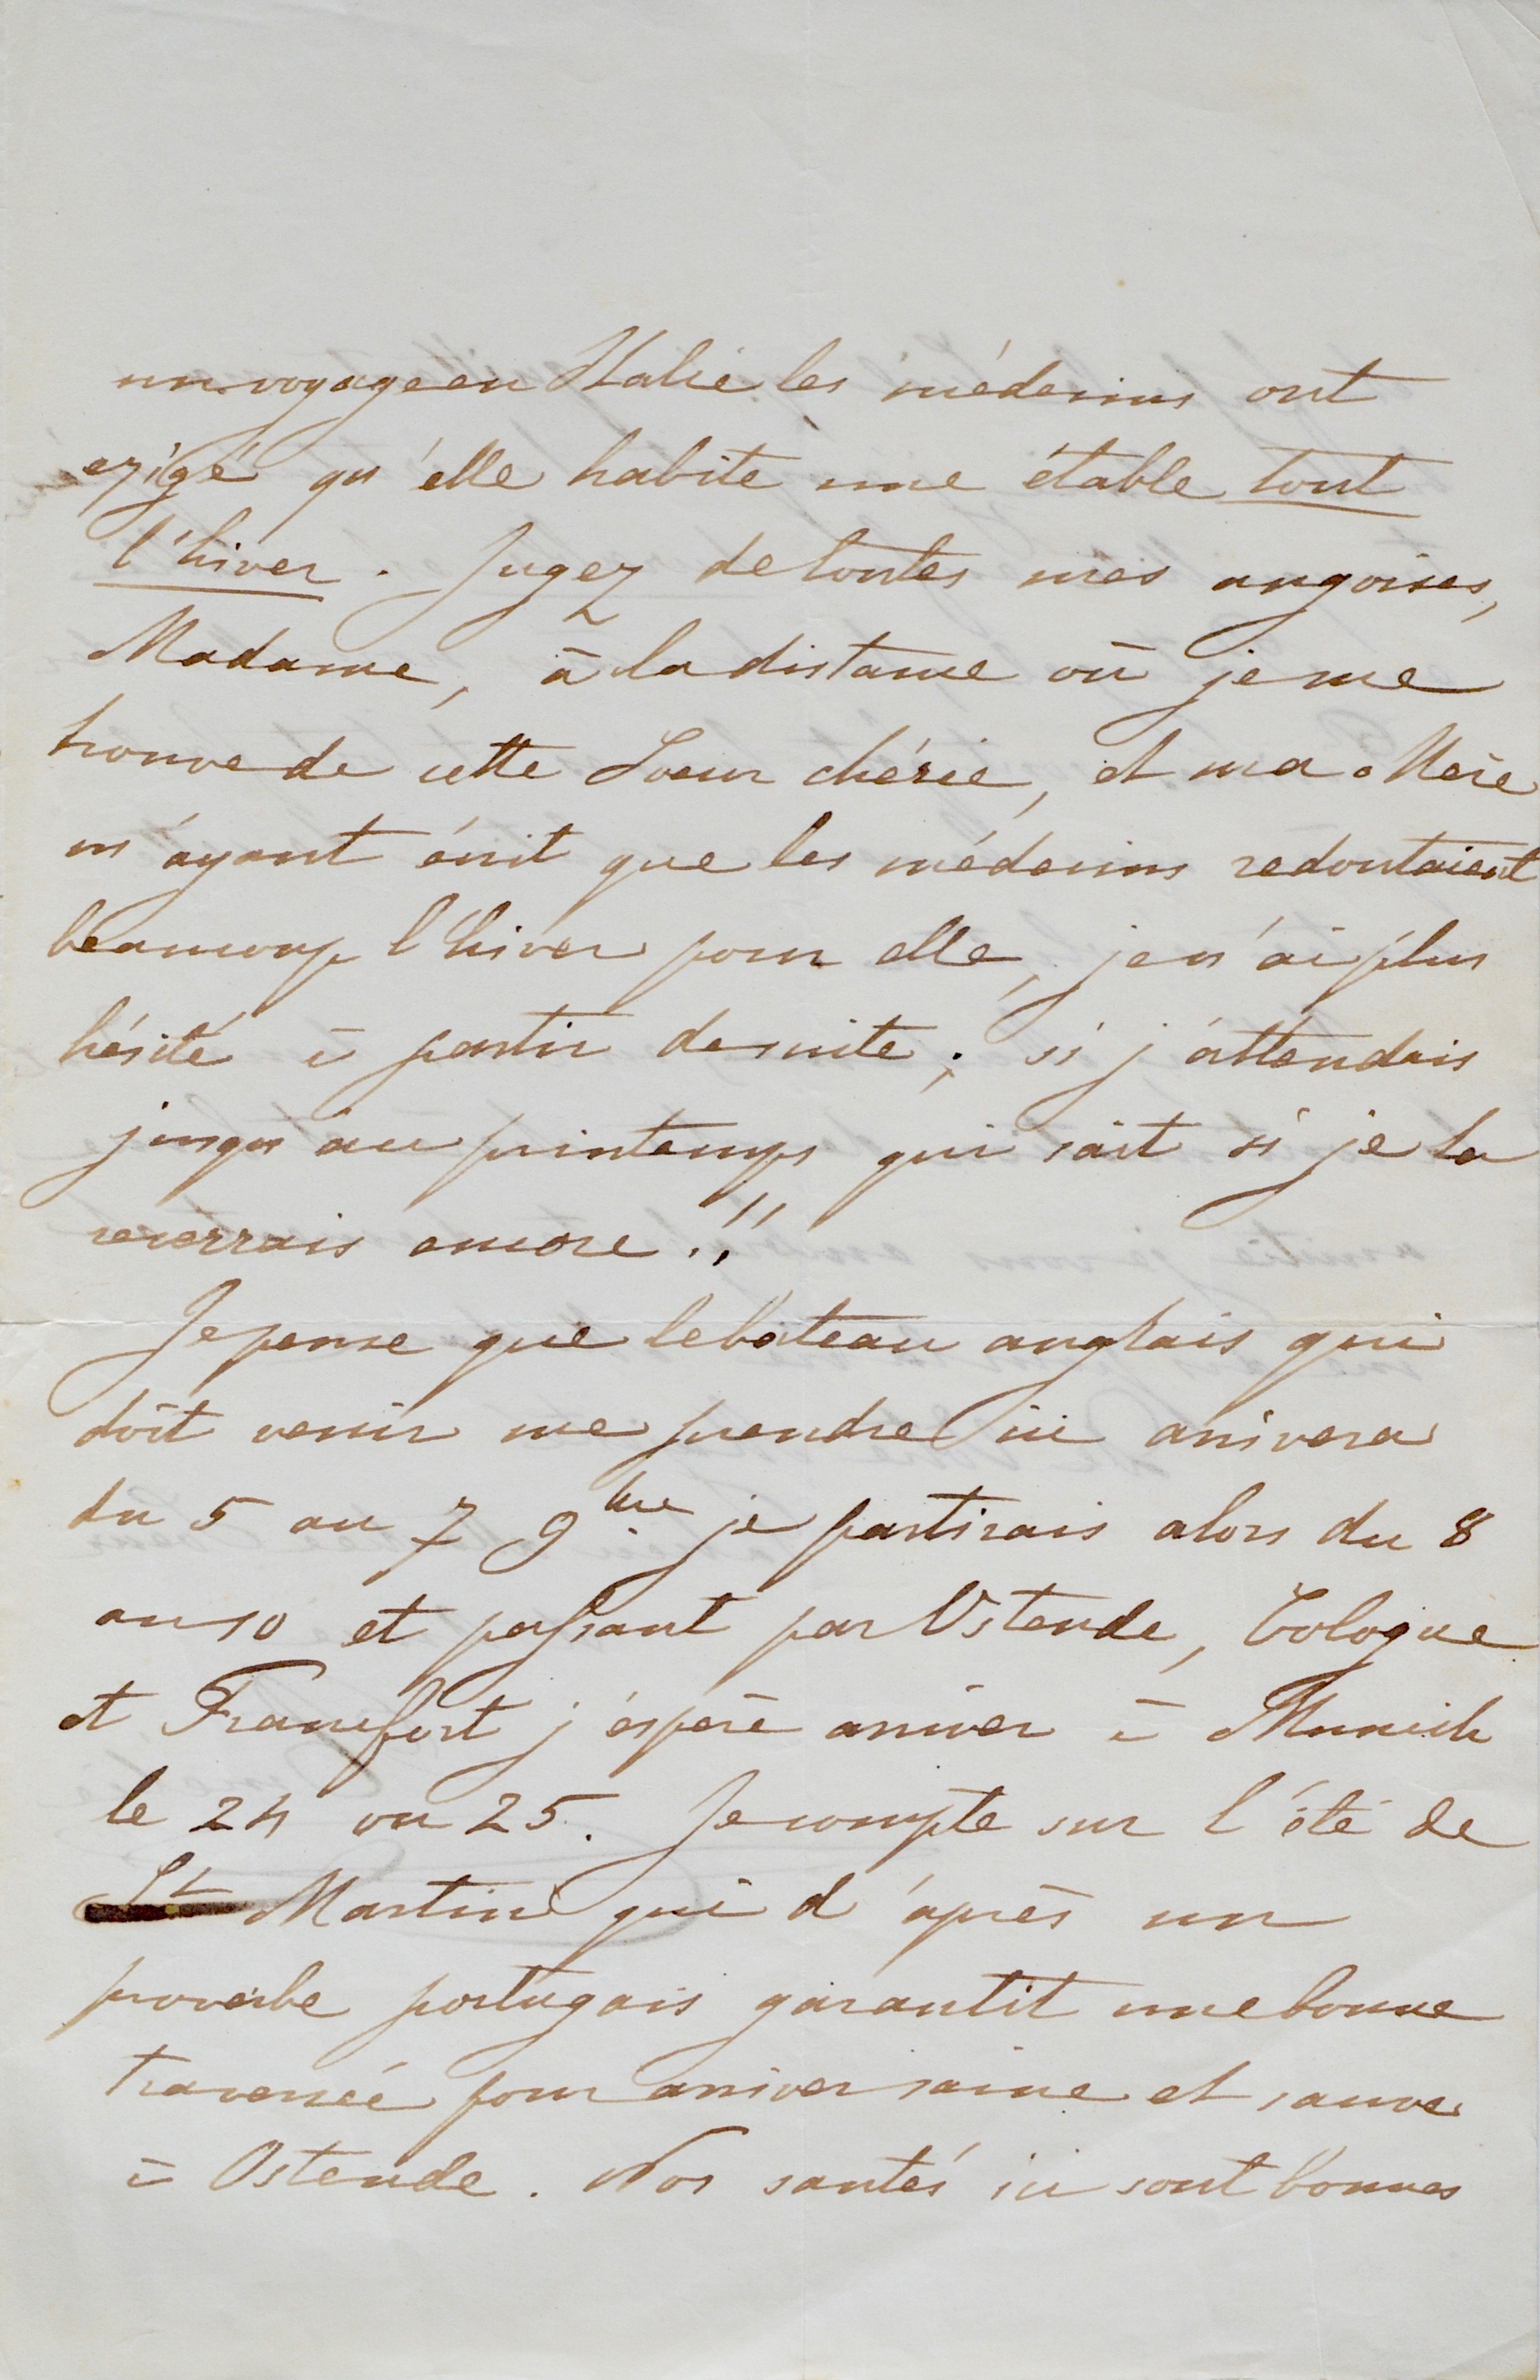 un voyage en Italie les médecins ont
exigé qu'elle habite une étable tout
l'hiver. Jugez de toutes mes angoises,
Madame, à la distance où je me
trouve de cette Soeur chérie, et ma Mère
m'ayant écrit que les médecins redoutaient
beaucoup l'hiver pour elle, je n'ai plus
hésité à partir de suite; si j'attendais
jusqu'au printemps qui sait si je la
reverrais encore!!
Je pense que le bateau anglais qui
doit venir me prendre ici arrivera
du 5 au 7 9bre je partirais alors du 8
au 10 et passant par Ostende, Cologne
et Francfort j'éspère arriver à Munich
le 24 ou 25. Je compte sur l'été de
St Martin qui d'après un
proverbe portugais garantit une bonne
traversée pour arriver saine et sauve
à Ostende. Nos santés ici sont bonnes